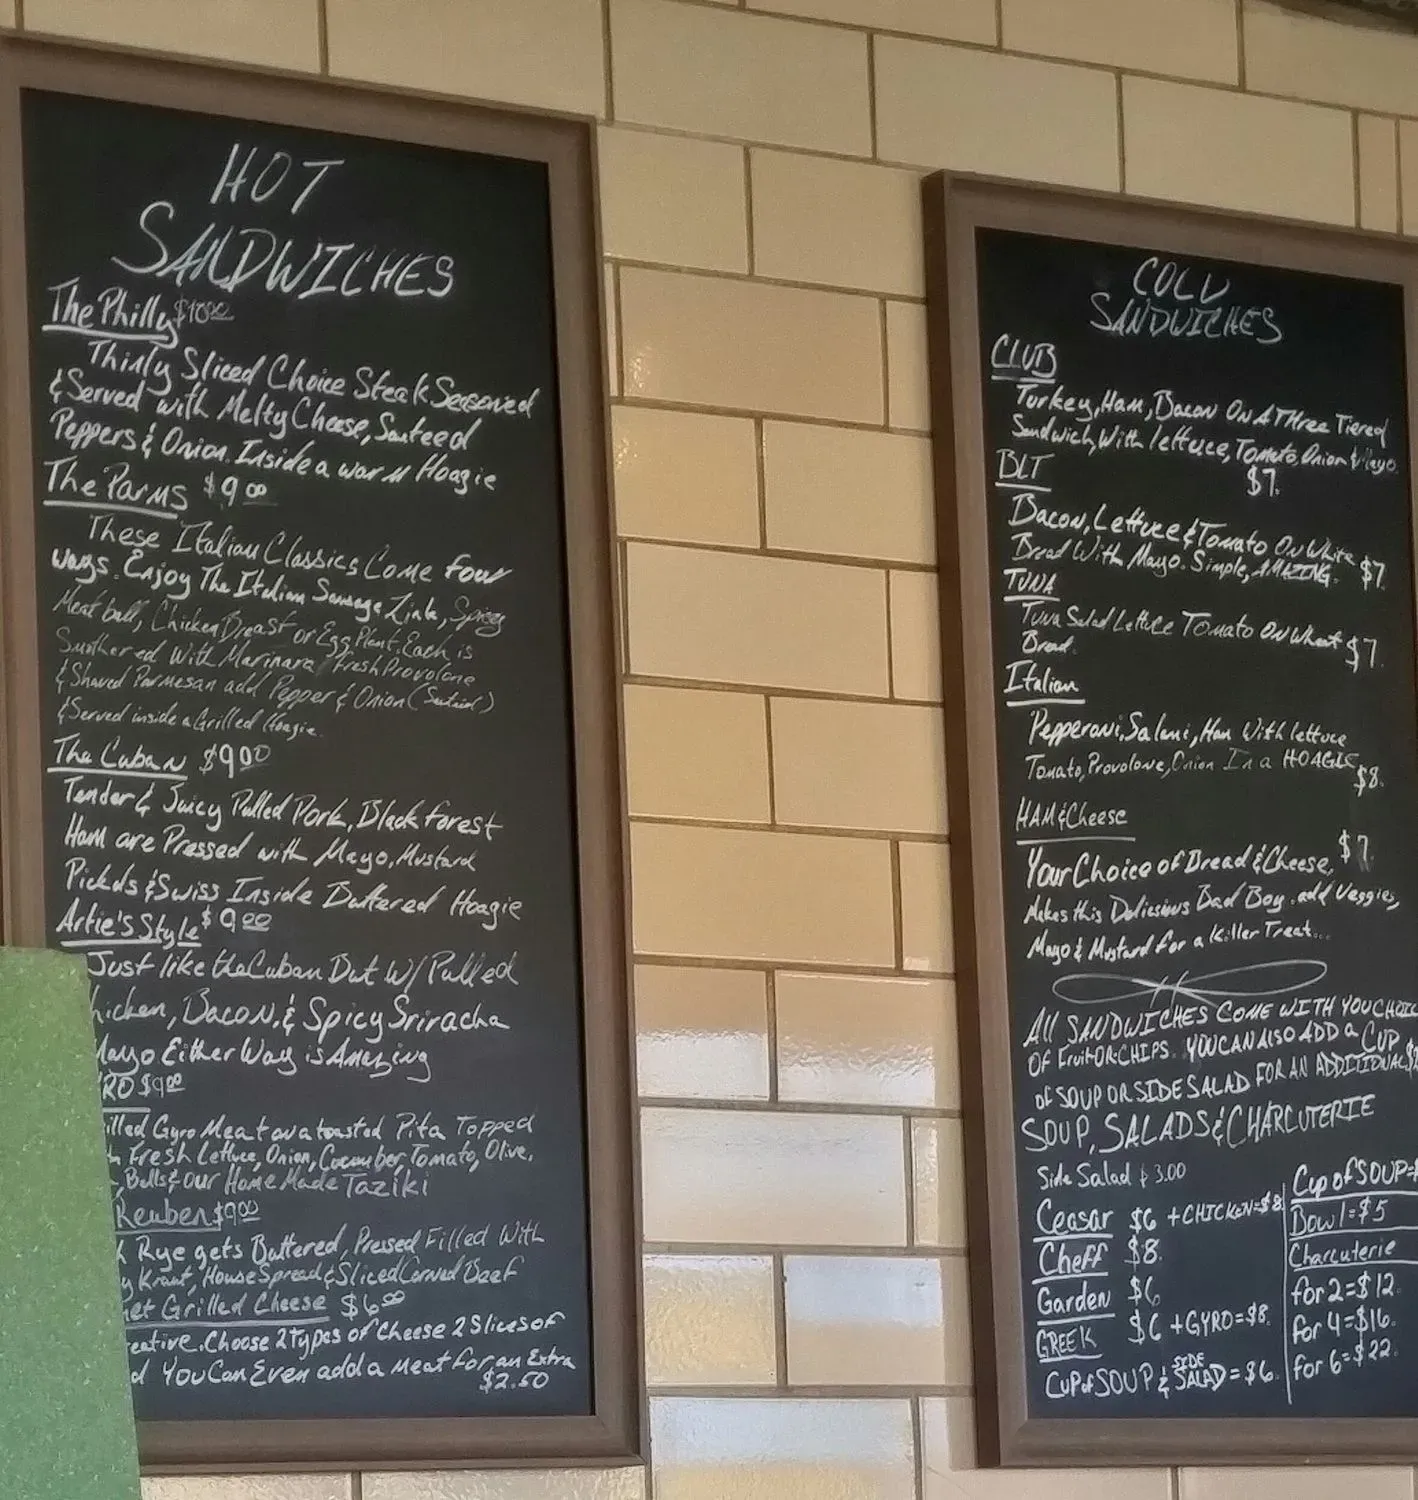 HOT
SANDWICHES
The Philly $10.00
Thinly Sliced Choice Steak Seasoned
& Served with Melty Cheese, Sauteed
Peppers & Onion. Inside a warm Hoagie
The Parms $9.00
These Italian Classics Come four
ways. Enjoy The Italian Sausage Link, Spicy
Meatball, Chicken Breast or Egg Plant. Each is
Smothered With Marinara Fresh Provolone
& Shaved Parmesan add Pepper & Onion
& Served inside a Grilled Hoagie.
The Cuban $9.00
Tender & Juicy Pulled Pork, Black forest
Ham are Pressed with Mayo, Mustard
& Swiss Inside Buttered Hoagie
Artie's Style $9.00
Just like the Cuban But W/ Pulled
hicken, Bacon, & Spicy Sriracha
Mayo Either Way is Amazing
RO $9.00
illed Gyro Meat on a toasted Pita Topped
Fresh Lettuce, Onion, Cucumber, Tomato, Olive,
Bells & our HomeMade Taziki
Reuben $9.00
Rye gets Buttered, Pressed Filled With
Kraut, House Spread & Sliced Corned Beef
et Grilled Cheese $6.00
reative. Choose 2 types of Cheese 2 Slices of
d You Can Even add a meat for an Extra
$2.50
COLD
SANDWICHES
CLUB
Turkey, Ham, Bacon On A THree Tiered
Sandwich, With lettuce, Tomato, Onion & Mayo.
$7.
BLT
Bacon, Lettuce & Tomato On White
Bread With Mayo. Simple, AMAZING. $7.
TUNA
Tuna Salad Lettuce Tomato On Wheat
Bread. $7.
Italian
Pepperoni, Salami, Ham With lettuce
Tomato, Provolone, Onion In a HOAGIE
$8.
HAM & Cheese
Your Choice of Bread & Cheese, $7.
Makes this Bad Boy. add Veggies,
Mayo & Mustard for a Killer Treat...
All SANDWICHES COME WITH YOU CHOIC
OF Fruit OR CHIPS. YOU CAN ALSO ADD a CUP
OF SOUP OR SIDE SALAD FOR AN ADDITIONAL
SOUP, SALADS & CHARCUTERIE
Side Salad $3.00
Ceasar $6 + CHICKEN=$8
Cheff $8.
Garden $6
GREEK $6 + GYRO=$8.
Cup of SOUP & SIDE SALAD = $6.
Cup of SOUP=
Bowl=$5
Charcuterie
for 2=$12.
for 4=$16.
for 6=$22.